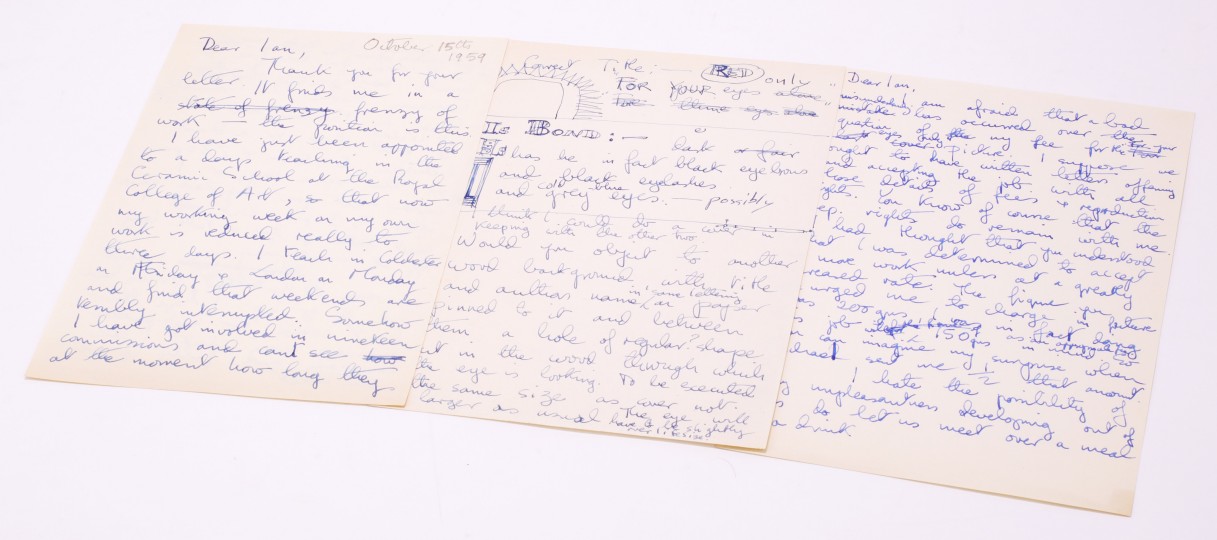 Dear Ian,
October 15th
1959
Thank you for your
letter. It finds me in a
state of frenzy frenzy of
work — the position is this
I have just been appointed
to a days teaching in the
Ceramic School at the Royal
College of Art, so that now
my working week on my own
work is reduced really to
three days. I teach in Colchester
on Friday & London on Monday
and find that weekends are
terribly interrupted. Somehow
I have got involved in nineteen
commissions and can't see how
at the moment how long they
Correct Title:— RED only
"FOR YOUR eyes alone"
For these eyes alone
Is BOND:— dark or fair
Has he in fact black eyebrows
and black eyelashes
and cold grey-blue eyes. — possibly
I think I could do a cover in
keeping with the other two.
Would you object to another
wood background with title
and authors name in same lettering on paper
pinned to it and between
them a hole of regular? shape
cut in the wood through which
the eye is looking. To be executed
the same size as cover not
larger as usual. The eye will
have to be slightly
over lifesize
Dear Ian,
I am afraid that a bad
misunderstanding
mistake has occurred over the
question of the my fee for the For your
eyes only cover picture. I suppose we
ought to have written letters offering
and accepting the job with all
those details of fees & reproduction
rights. You know of course that the
rep: rights do remain with me.
I had thought that you understood
that I was determined to accept
no more work unless at a greatly
increased rate. The figure you
urged me to charge in future
was 200 gns. I was in fact doing
this job 150 gns
can imagine my surprise when
sent me 1/2 that amount.
I hate the possibility of
any unpleasantness developing out of
do let us meet over a meal
a drink